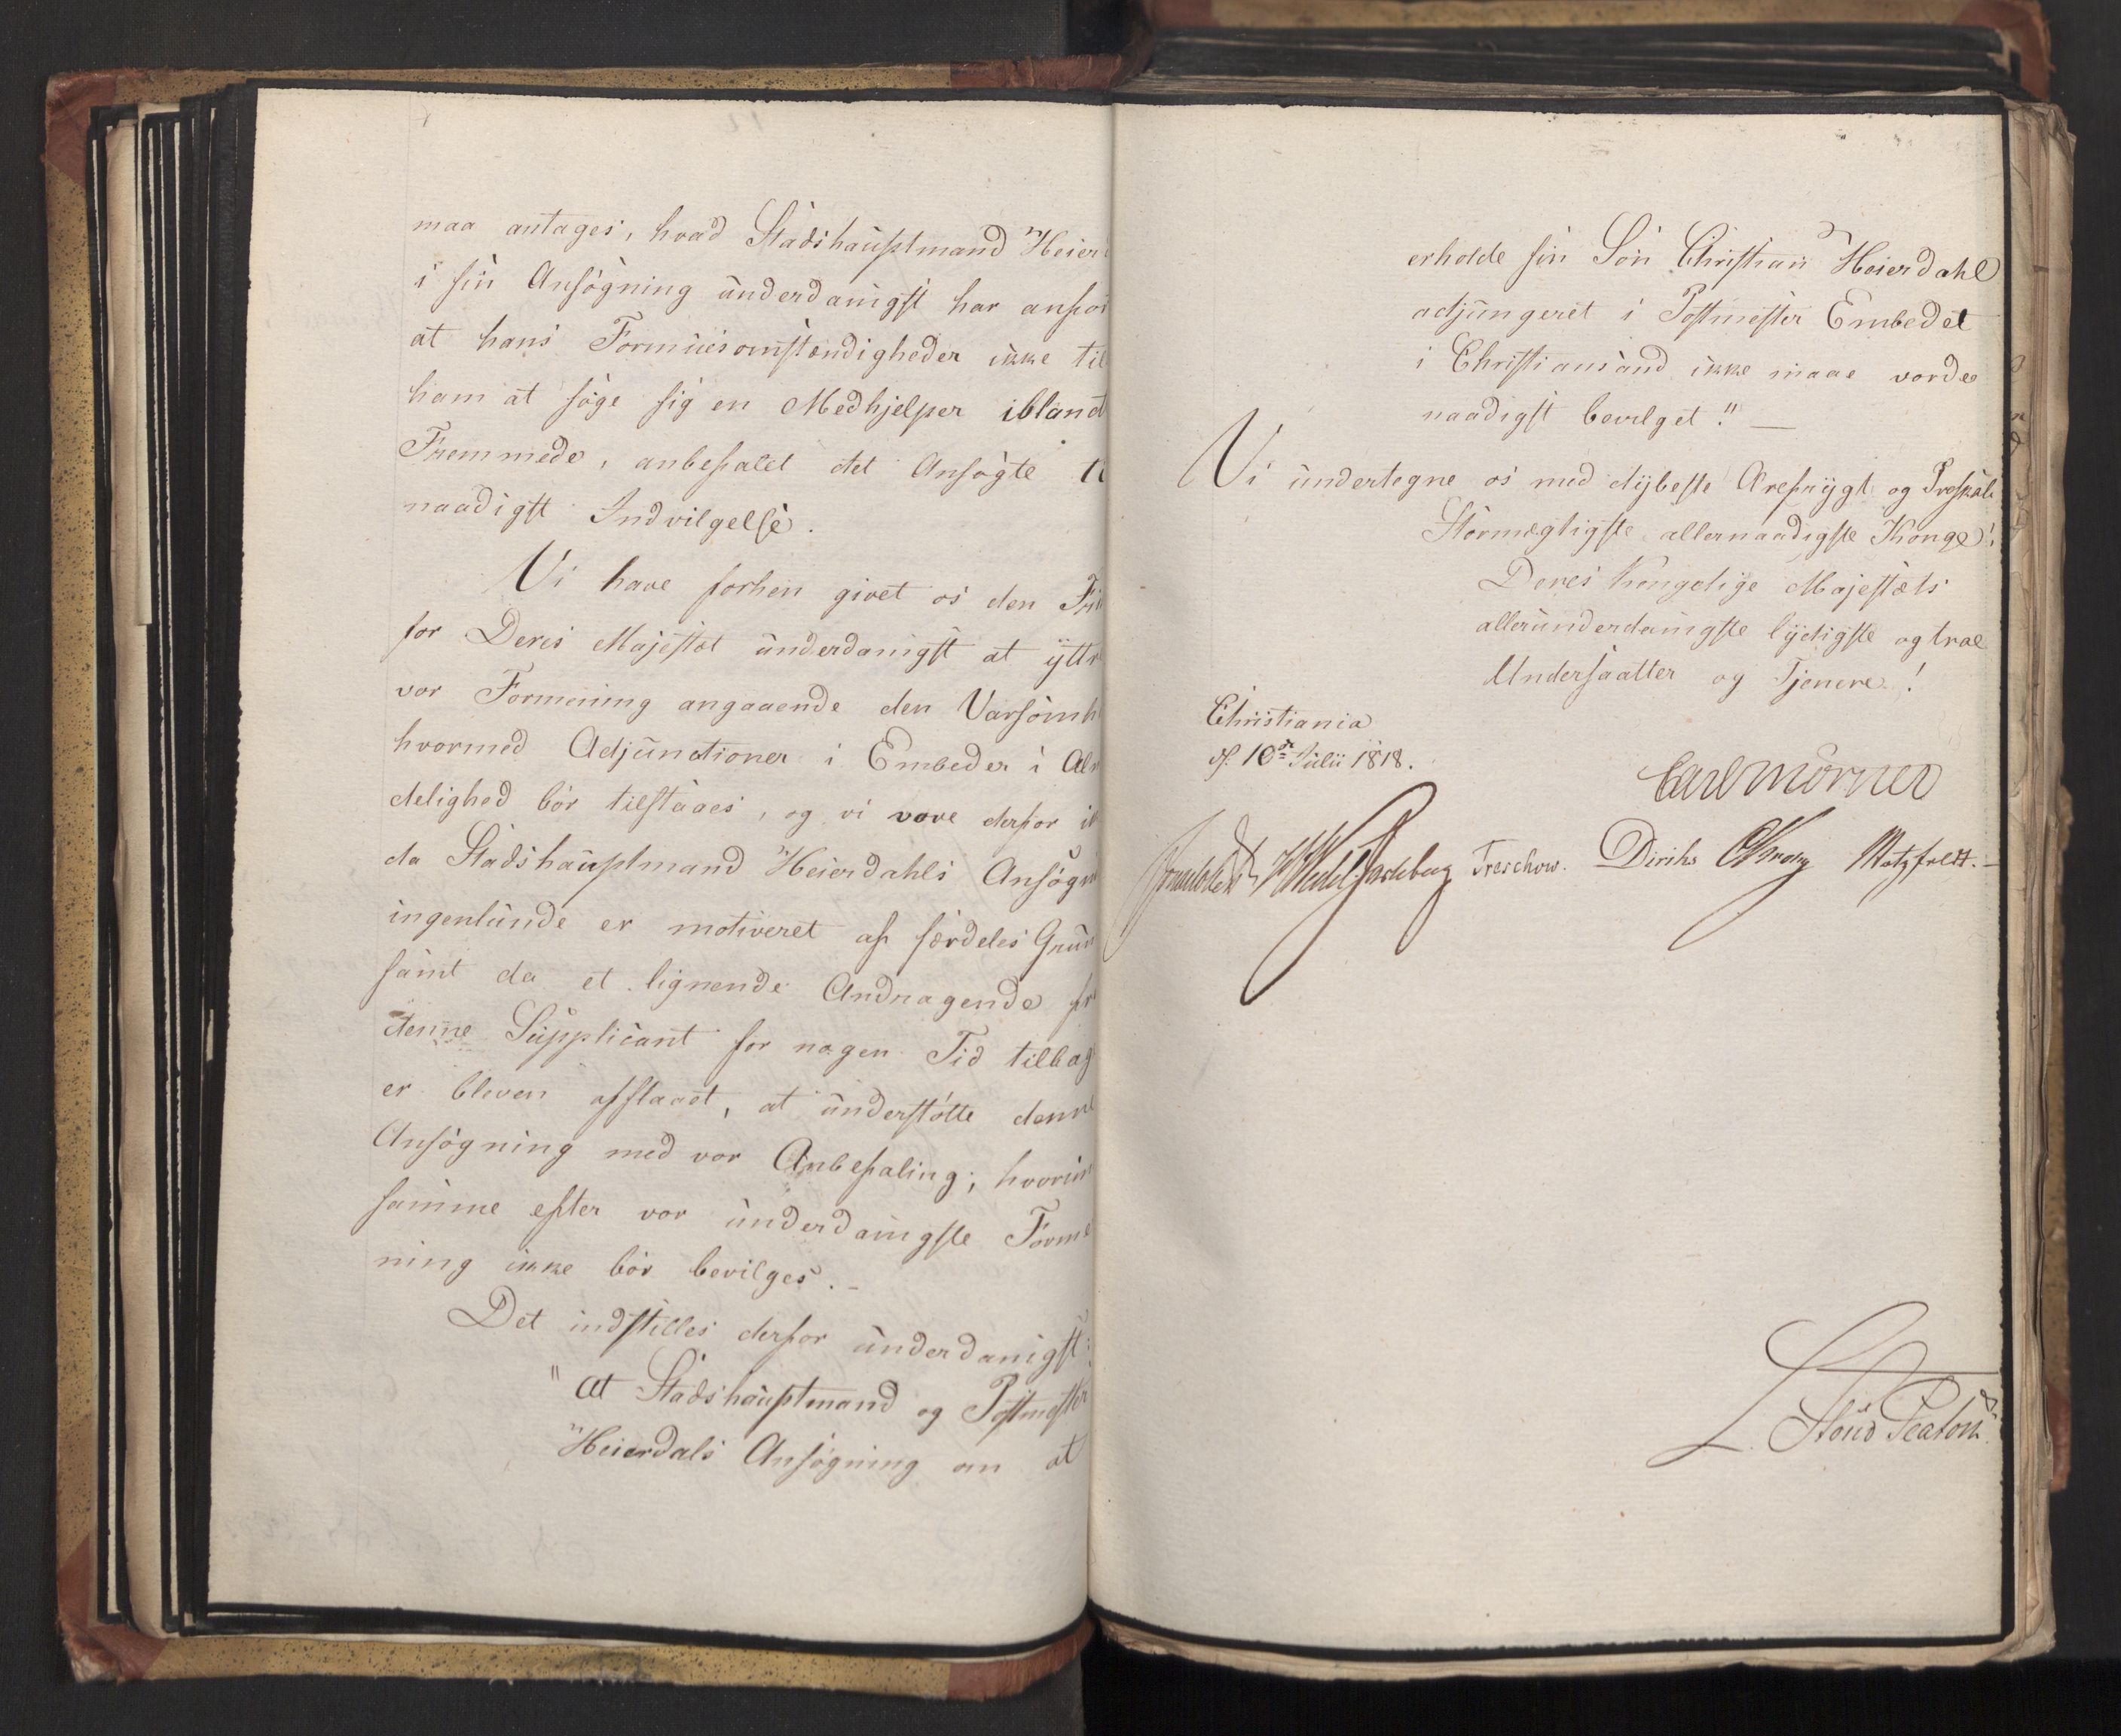 maa antages, hvad Stadshauptmand Heier
i sin Ansøgning underdanigst har anfør
at hans Formuesomstændigheder ikke til
ham at søge sig en Medhjelper iblandt
Fremmede, anbefalet det Ansøgte ti
naadigst Indvilgelse.
Vi have forhen givet os den Fri
for Deres Majestæt underdanigst at yttr
vor Formening angaaende den Varsomh
hvormed Adjunctioner i Embeder i Alm
delighed bør tilstaaes, og vi vove derfor ik
da Stadshauptmand Heierdahls Ansøgni
ingenlunde er motiveret af særdeles Grun
samt da et lignende Andragende fr
denne Supplicant for nogen Tid tilbag
er bleven afslaaet, at understøtte denne
Ansøgning med vor Anbefaling, hvorim
samme efter vor underdanigste Forme
ning ikke bør bevilges.
Det indstilles derfor underdanigst:
"at Stadshauptmand og Postmester
Heierdals Ansøgning om at
erholde sin Søn Christian Heierdahl
adjungeret i Postmester Embedet
i Christiansand ikke maae vorde
naadigst bevilget." —
Vi undertegne os med dybeste Ærefrygt og
Stormægtigste allernaadigste Konge!
Deres Kongelige Majestæts
allerunderdanigste lydigste og troe
Undersaatter og Tjenere!
Christiania
d. 10de Julii 1818.
Carl Mörner
Treschow. Diriks Krog Motzfeldt.